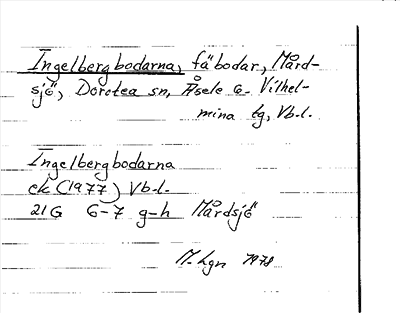 Ingelbergbodarna, fäbodar, Mård-
sjö, Dorotea sn, Åsele o. Vilhel-
mina tg, Vb.l.
Ingelbergbodarna
ek (1977) Vb.l.
21G 6-7 g-h Mårdsjö
M. Lgn 1978